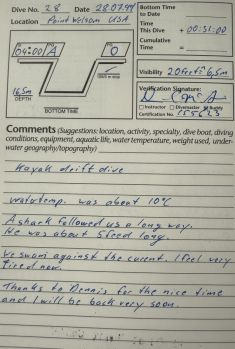 Dive No. 28 Date 28.07.99
Location Point Wilson USA
Bottom Time
to Date
Time
This Dive + 00:51:00
Cumulative
Time =
04:00 A
O
16,5m
DEPTH
BOTTOM TIME
Visibility 20feet = 6,5m
Verification Signature:
Instructor Divemaster Buddy
Certification No. 155623
Comments (Suggestions: location, activity, specialty, dive boat, diving
conditions, equipment, aquatic life, water temperature, weight used, under-
water geography/topography)
Kayak drift dive
watertemp. was about 10°C
A shark followed us a long way.
He was about 5 feed long.
We swam against the curent. I feel very
tired now.
Thanks to Dennis for the nice time
and I will be back very soon.